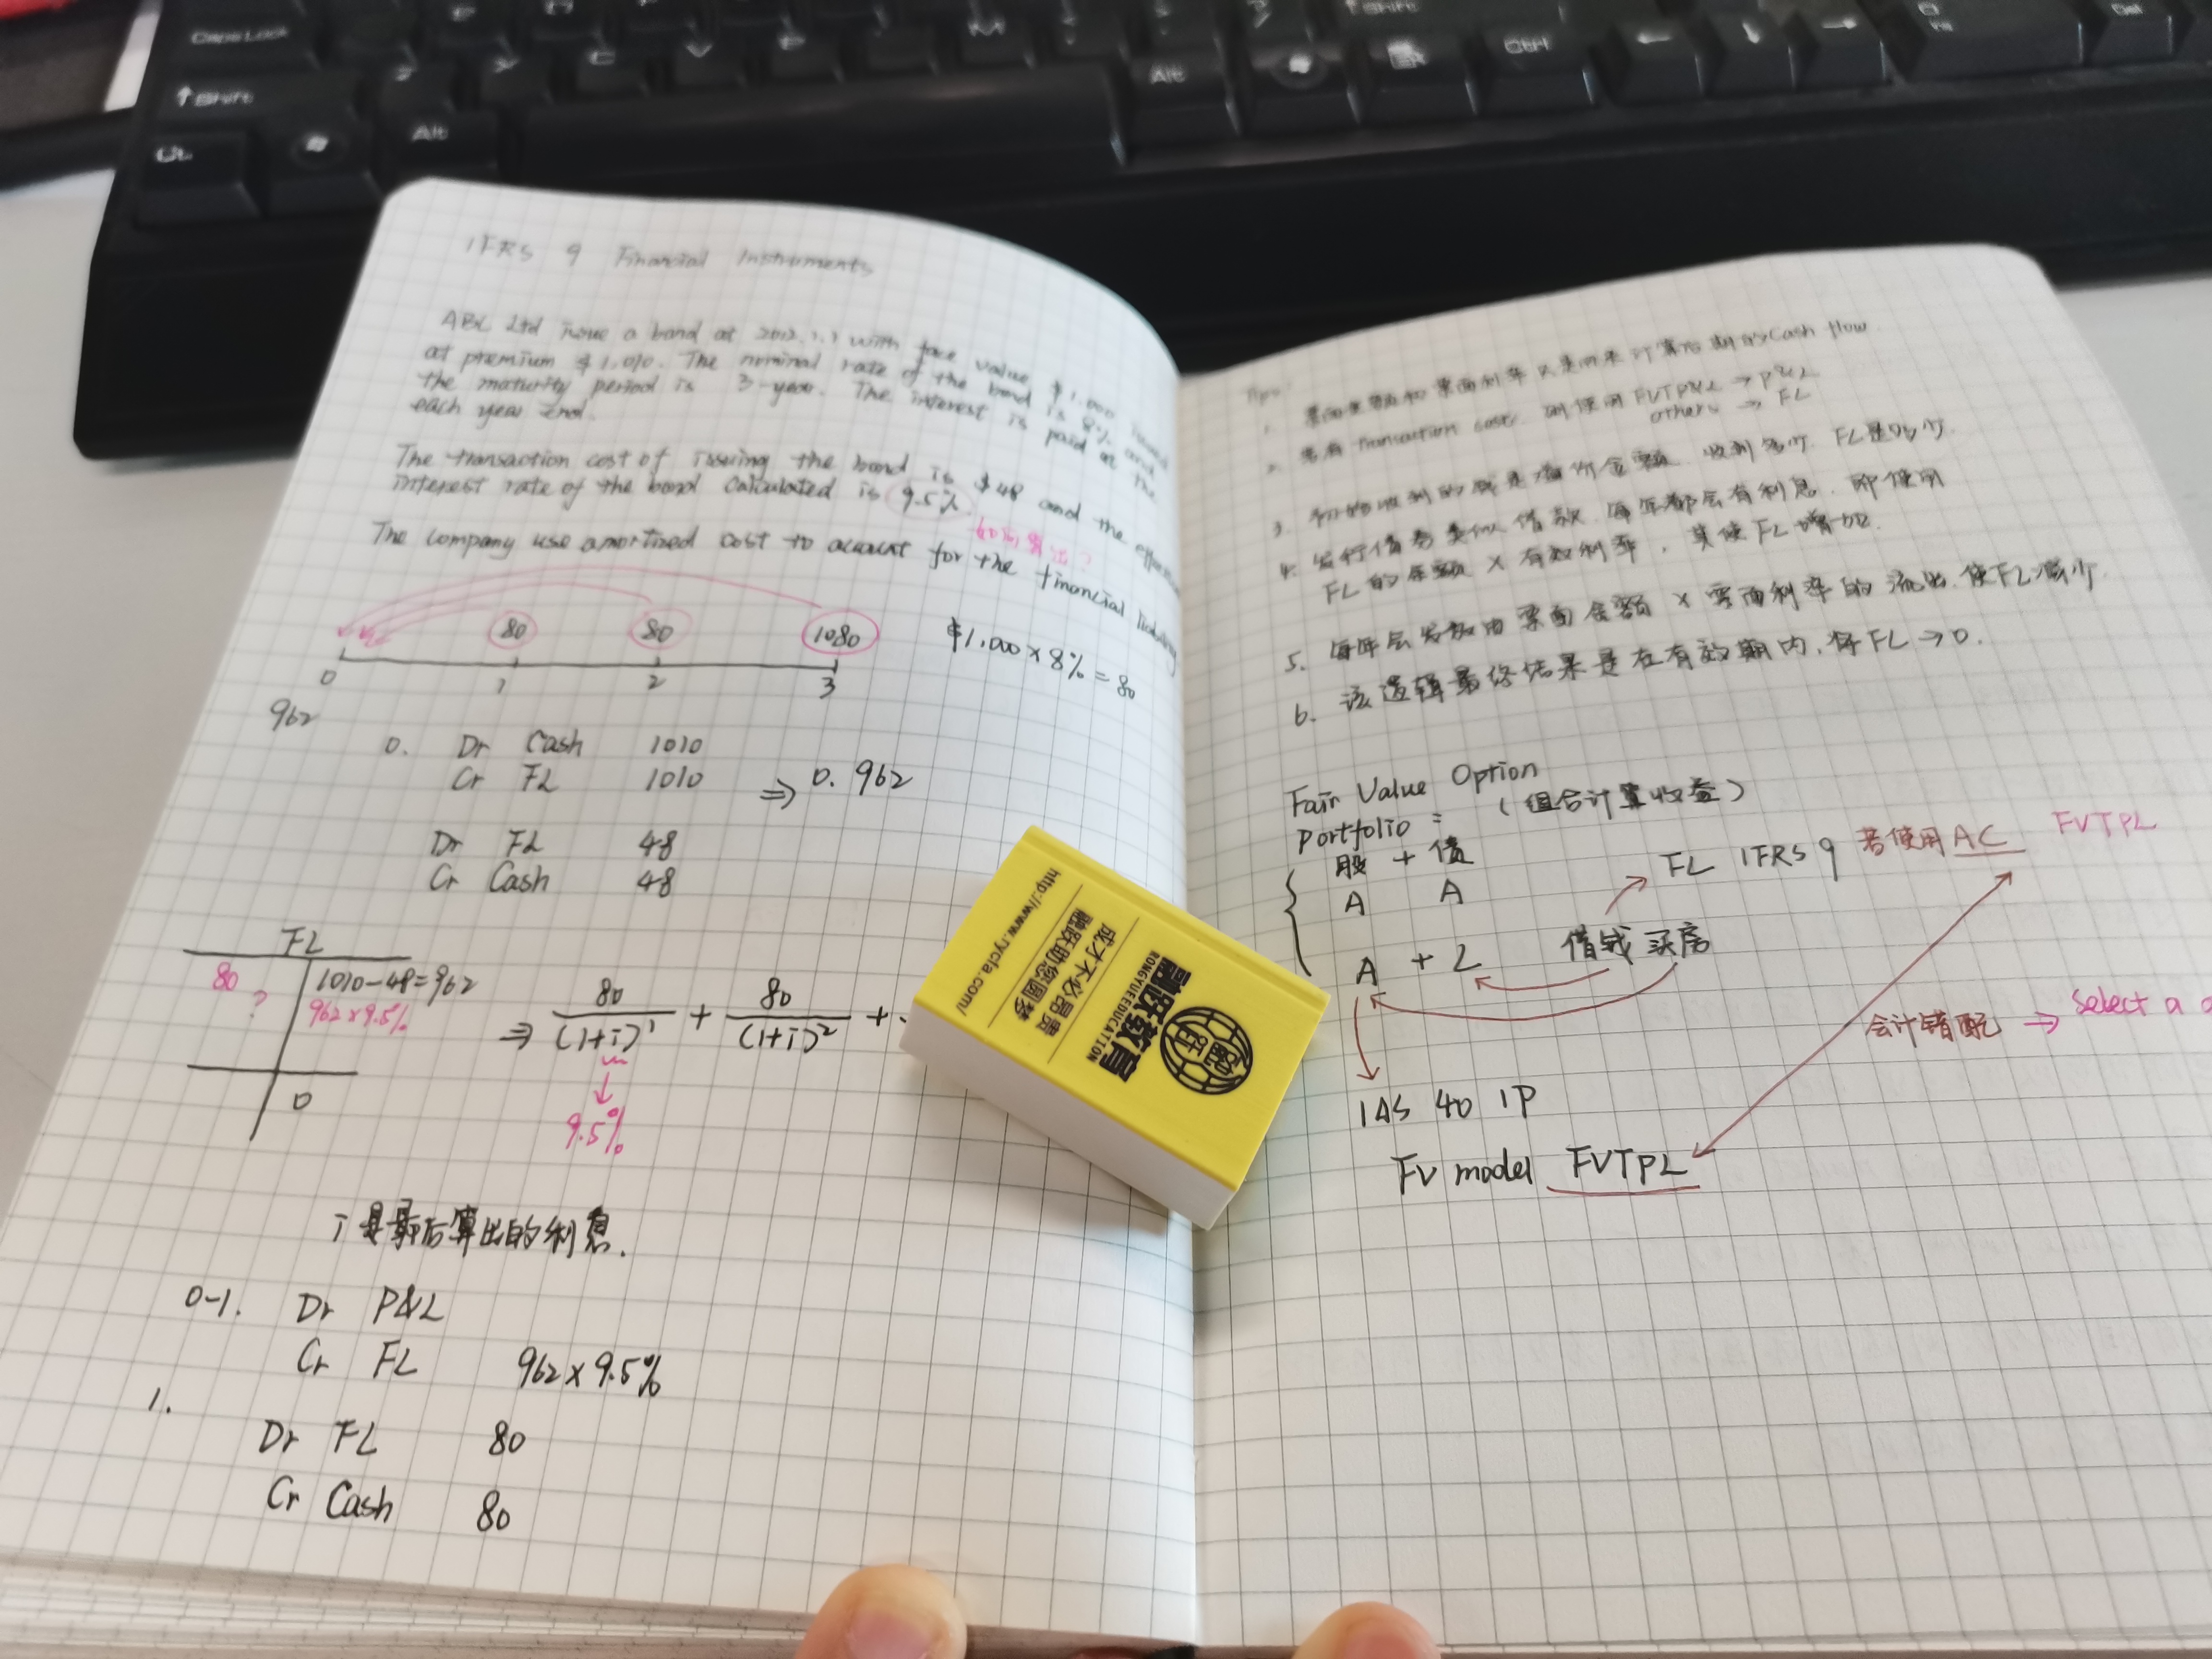 IFRS 9 Financial Instruments
ABC Ltd issue a bond at 2012.1.1 with face value $1.000 issued
at premium $1.010. The nominal rate of the bond is 8% and
the maturity period is 3-year. The interest is paid at the
each year end.
The transaction cost of issuing the bond is $48 and the effective
interest rate of the bond calculated is 9.5%.
The company use amortized cost to account for the financial liability
80 80 1080
$1.000×8%=80
0 1 2 3
962
0. Dr Cash 1010
Cr FL 1010
⇒ 0. 962
Dr FL 48
Cr Cash 48
FL
80
?
1010-48=962
962×9.5%
0
⇒ 80/(1+i)^1 + 80/(1+i)^2 + .
9.5%
i是最后算出的利息.
0-1. Dr P&L
Cr FL 962×9.5%
1.
Dr FL 80
Cr Cash 80
Tips:
1. 票面金额和票面利率只是用来计算后期的Cash flow
2. 若有transaction cost. 则使用FVTP&L → P&L
others → FL
3. 收到多少. FL是多少.
4. 发行债券类似借款. 每年都会有利息. 即使用
FL的余额×有效利率, 其使FL增加.
5. 每年会发放由票面金额×票面利率的流出. 使FL减少.
6. 该逻辑最终结果是在有效期内, 将FL→0.
Fair Value Option
Portfolio: (组合计算收益)
股 + 债
A A
A + L
借钱买房
FL IFRS 9 若使用AC FVTPL
会计错配 ⇒ Select a
IAS 40 IP
FV model FVTPL
融跃教育
RONGYUEEDUCATION
成才不必昂贵
融跃助您圆梦
http://www.rycfa.com/
Caps Lock
Shift
Alt
Alt
Ctrl
Shift